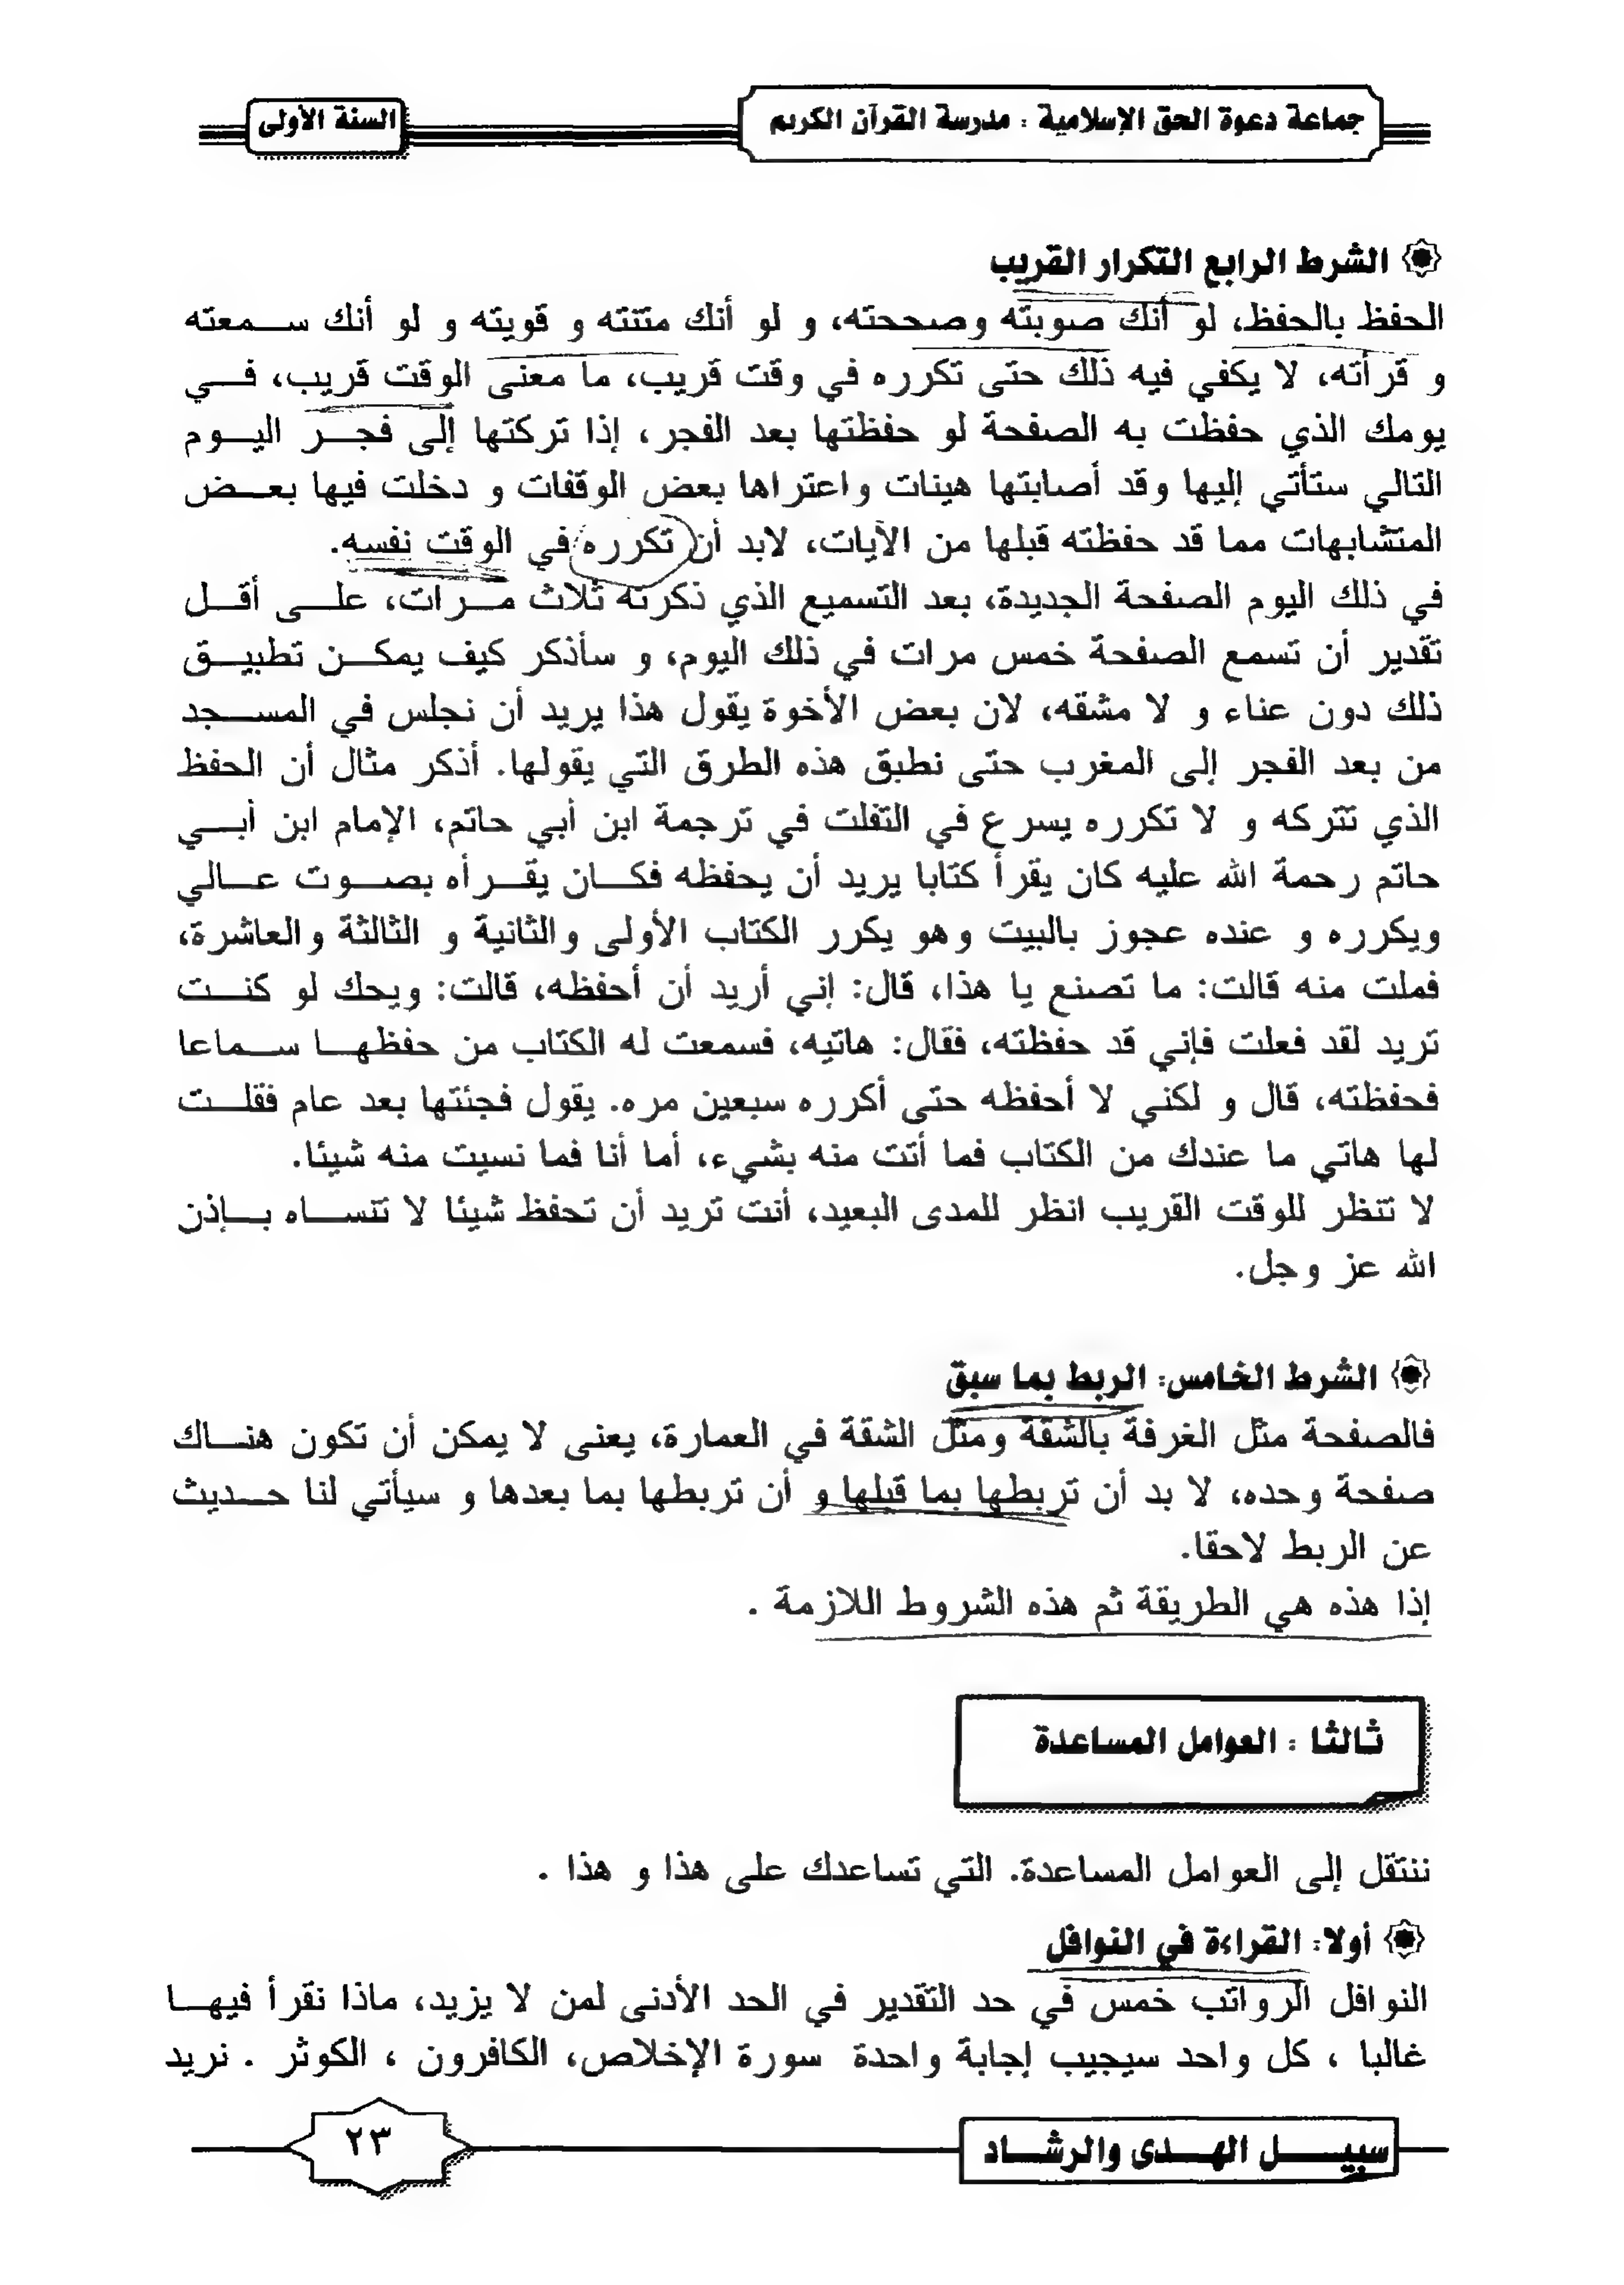 جماعة دعوة الحق الإسلامية : مدرسة القرآن الكريم
السنة الأولى
الشرط الرابع التكرار القريب
الحفظ بالحفظ، لو أنك صوبته وصححته، و لو أنك متنته و قويته و لو أنك سمعته
و قرأته، لا يكفي فيه ذلك حتى تكرره في وقت قريب، ما معنى الوقت قريب، في
يومك الذي حفظت به الصفحة لو حفظتها بعد الفجر، إذا تركتها إلى فجر اليوم
التالي ستأتي إليها وقد أصابتها هينات واعتراها بعض الوقفات و دخلت فيها بعض
المتشابهات مما قد حفظته قبلها من الآيات، لابد أن تكرره في الوقت نفسه.
في ذلك اليوم الصفحة الجديدة، بعد التسميع الذي ذكرته ثلاث مرات، على أقل
تقدير أن تسمع الصفحة خمس مرات في ذلك اليوم، و سأذكر كيف يمكن تطبيق
ذلك دون عناء و لا مشقه، لان بعض الأخوة يقول هذا يريد أن نجلس في المسجد
من بعد الفجر إلى المغرب حتى نطبق هذه الطرق التي يقولها. أذكر مثال أن الحفظ
الذي تتركه و لا تكرره يسرع في التفلت في ترجمة ابن أبي حاتم، الإمام ابن أبي
حاتم رحمة الله عليه كان يقرأ كتابا يريد أن يحفظه فكان يقرأه بصوت عالي
ويكرره و عنده عجوز بالبيت وهو يكرر الكتاب الأولى والثانية و الثالثة والعاشرة،
فملت منه قالت: ما تصنع يا هذا، قال: إني أريد أن أحفظه، قالت: ويحك لو كنت
تريد لقد فعلت فإني قد حفظته، فقال: هاتيه، فسمعت له الكتاب من حفظها سماعا
فحفظته، قال و لكني لا أحفظه حتى أكرره سبعين مره. يقول فجئتها بعد عام فقلت
لها هاتي ما عندك من الكتاب فما أتت منه بشيء، أما أنا فما نسيت منه شيئا.
لا تنظر للوقت القريب انظر للمدى البعيد، أنت تريد أن تحفظ شيئا لا تنساه بإذن
الله عز وجل.
الشرط الخامس: الربط بما سبق
فالصفحة مثل الغرفة بالشقة ومثل الشقة في العمارة، يعنى لا يمكن أن تكون هناك
صفحة وحده، لا بد أن تربطها بما قبلها و أن تربطها بما بعدها و سيأتي لنا حديث
عن الربط لاحقا.
إذا هذه هي الطريقة ثم هذه الشروط اللازمة .
ثالثا : العوامل المساعدة
ننتقل إلى العوامل المساعدة. التي تساعدك على هذا و هذا .
أولا: القراءة في النوافل
النوافل الرواتب خمس في حد التقدير في الحد الأدنى لمن لا يزيد، ماذا نقرأ فيها
غالبا ، كل واحد سيجيب إجابة واحدة سورة الإخلاص، الكافرون ، الكوثر . نريد
سبيل الهدى والرشاد
٢٣